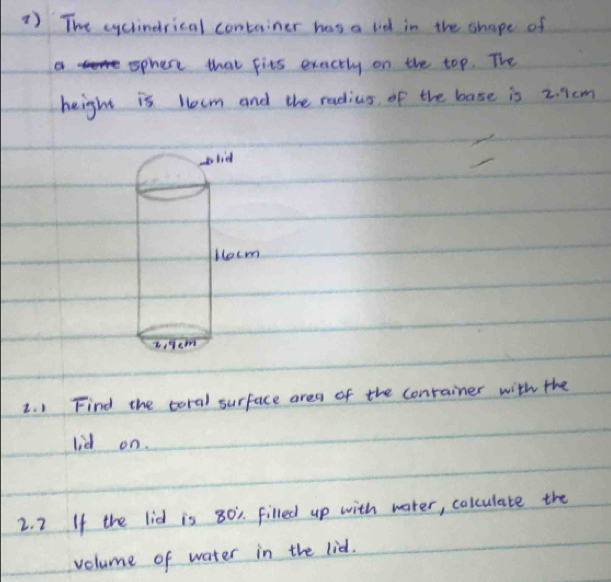 2) The cyclindrical container has a lid in the shape of
a sphere that fits exactly on the top. The
height is 16cm and the radius of the base is 2.9cm
lid
16cm
2,9cm
2.1 Find the total surface area of the container with the
lid on.
2.2 If the lid is 80% filled up with water, calculate the
volume of water in the lid.